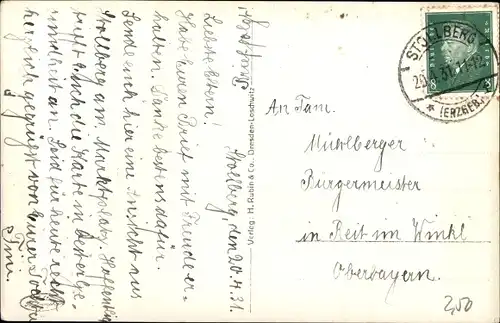 Stollberg, den 20.4.31.
Liebste Eltern!
Habe Euren Brief mit Freude er-
halten. Danke bestens dafür.
Sende euch hier eine Ansicht aus
Stollberg am Marktplatz. Hoffentlich
trifft Euch die Karte in bester Ge-
sundheit an. Seid für heute recht
herzlich gegrüßt von Eurer Tochter
Verlag: H. Rubin & Co., Dresden-Loschwitz
STOLLBERG
20.4.31. 11-12
* (ERZGEB.)
8
An Fam.
Mühlberger
Bürgermeister
in Reit im Winkl
Oberbayern.
2,50